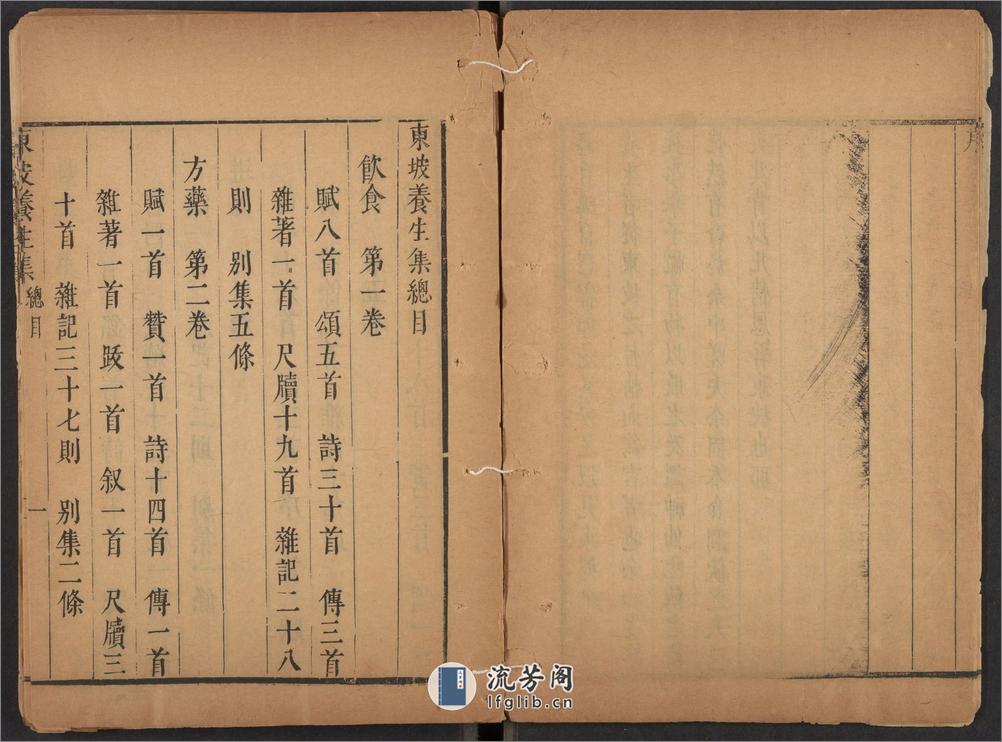 序
東坡養生集總目
飲食 第一卷
賦八首 頌五首 詩三十首 傳三首
雜著一首 尺牘十九首 雜記二十八
則 別集五條
方藥 第二卷
賦一首 贊一首 詩十四首 傳一首
雜著一首 跋一首 叙一首 尺牘三
十首 雜記三十七則 別集二條
東坡養生集 總目 一
流芳阁
lfglib.cn